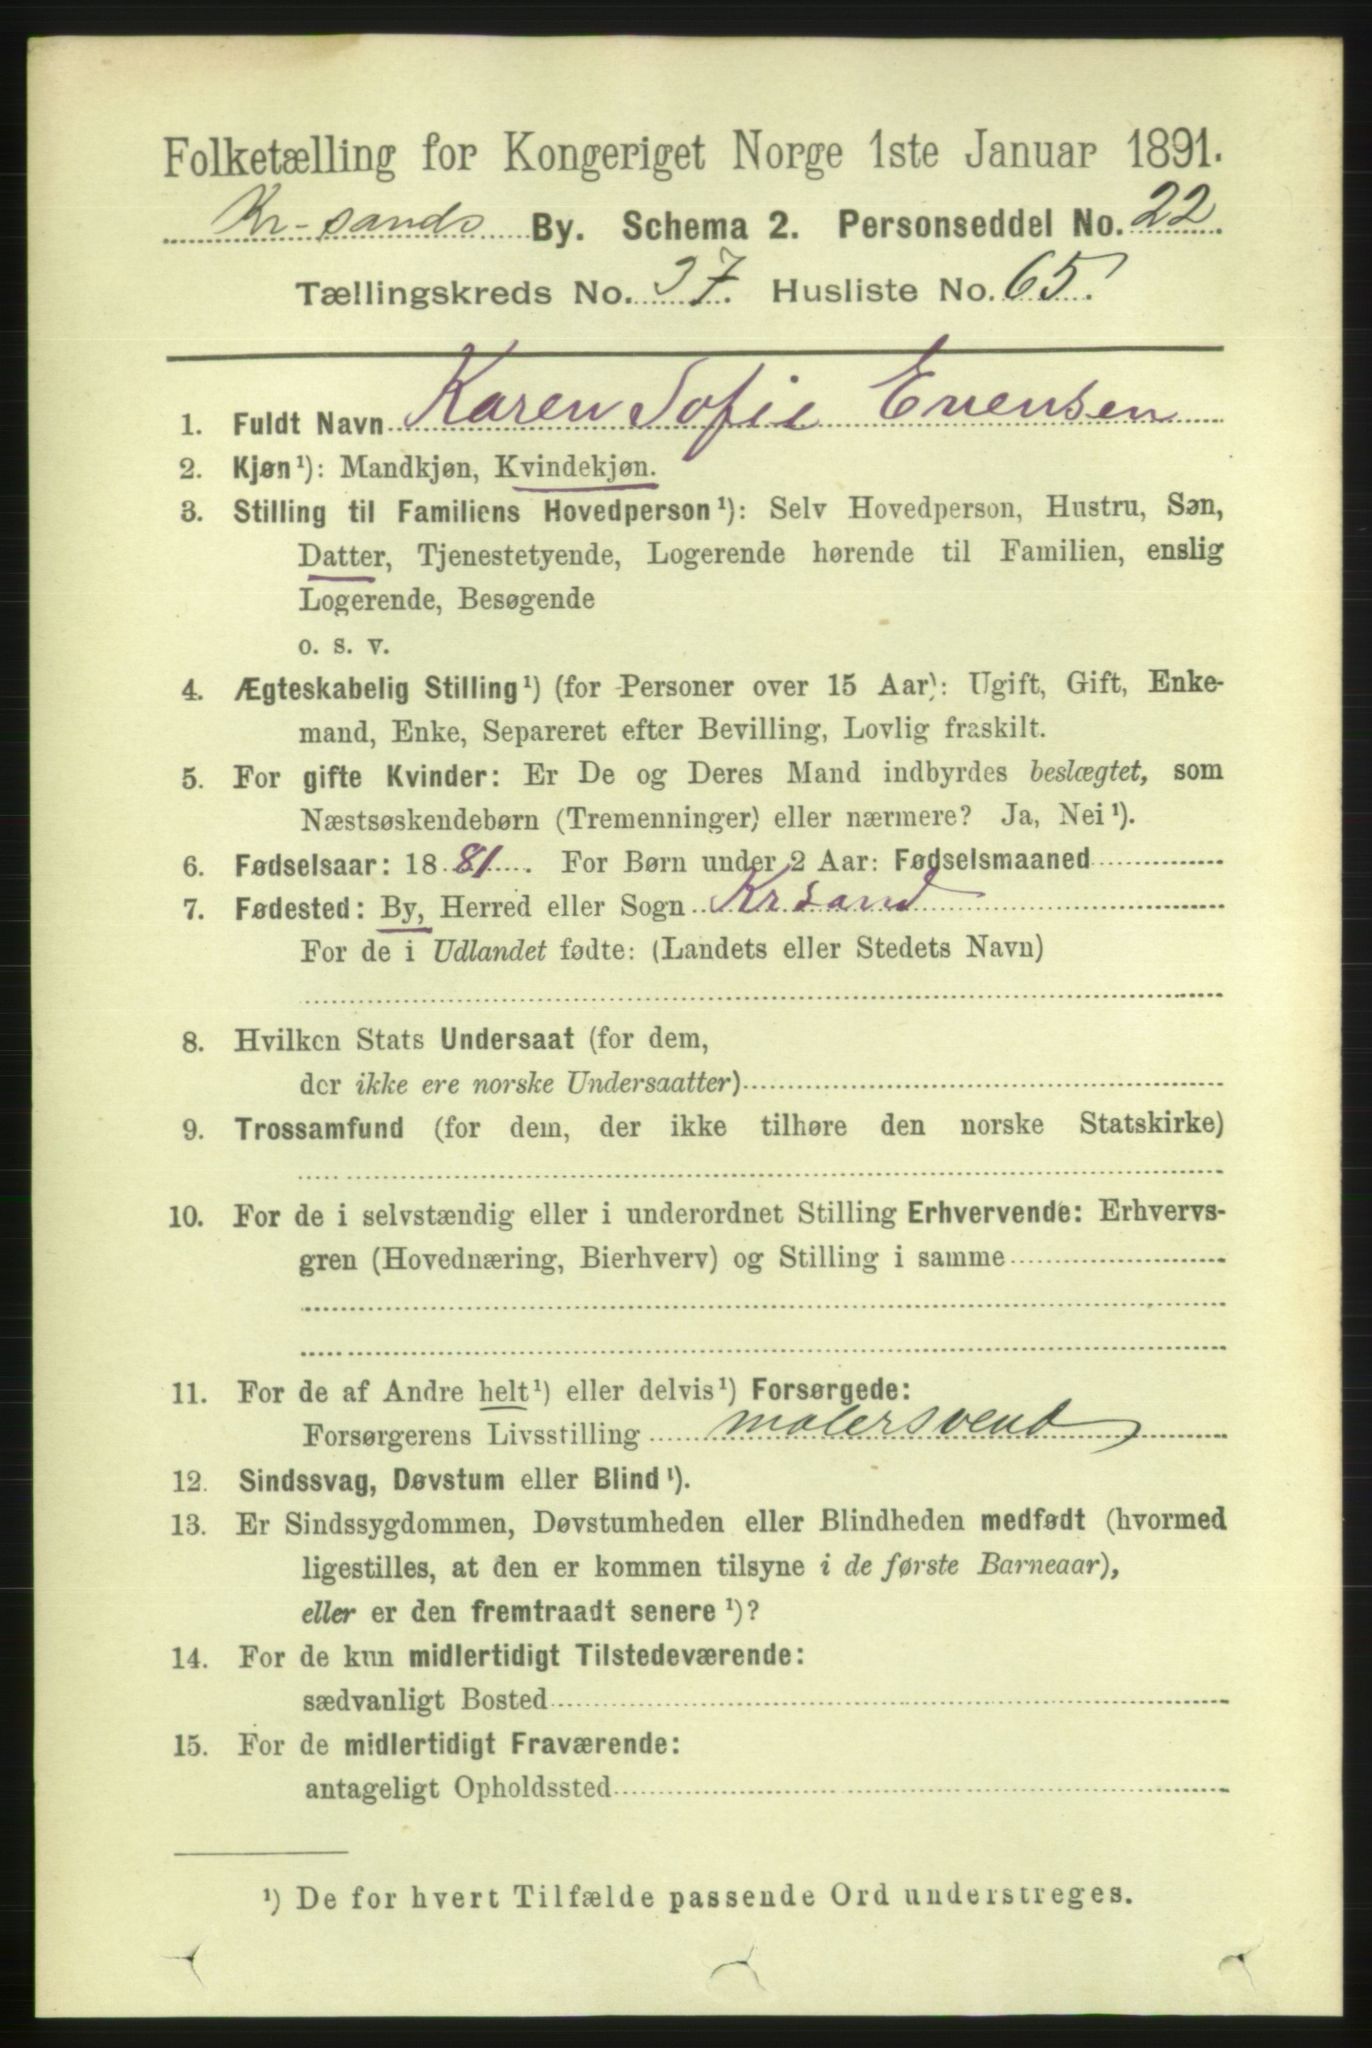 Folketælling for Kongeriget Norge 1ste Januar 1891.
Kr-sands By. Schema 2. Personseddel No. 22.
Tællingskreds No. 37. Husliste No. 65.
1. Fuldt Navn Karen Sofie Evensen
2. Kjøn¹): Mandkjøn, Kvindekjøn.
3. Stilling til Familiens Hovedperson¹): Selv Hovedperson, Hustru, Søn,
Datter, Tjenestetyende, Logerende hørende til Familien, enslig
Logerende, Besøgende
o. s. v.
4. Ægteskabelig Stilling¹) (for Personer over 15 Aar): Ugift, Gift, Enke-
mand, Enke, Separeret efter Bevilling, Lovlig fraskilt.
5. For gifte Kvinder: Er De og Deres Mand indbyrdes beslægtet, som
Næstsøskendebørn (Tremenninger) eller nærmere? Ja, Nei¹).
6. Fødselsaar: 1881. For Børn under 2 Aar: Fødselsmaaned
7. Fødested: By, Herred eller Sogn Krsand
For de i Udlandet fødte: (Landets eller Stedets Navn)
8. Hvilken Stats Undersaat (for dem,
der ikke ere norske Undersaatter)
9. Trossamfund (for dem, der ikke tilhøre den norske Statskirke)
10. For de i selvstændig eller i underordnet Stilling Erhvervende: Erhvervs-
gren (Hovednæring, Bierhverv) og Stilling i samme
11. For de af Andre helt¹) eller delvis¹) Forsørgede:
Forsørgerens Livsstilling malersvend
12. Sindssvag, Døvstum eller Blind¹).
13. Er Sindssygdommen, Døvstumheden eller Blindheden medfødt (hvormed
ligestilles, at den er kommen tilsyne i de første Barneaar),
eller er den fremtraadt senere¹)?
14. For de kun midlertidigt Tilstedeværende:
sædvanligt Bosted
15. For de midlertidigt Fraværende:
antageligt Opholdssted
¹) De for hvert Tilfælde passende Ord understreges.